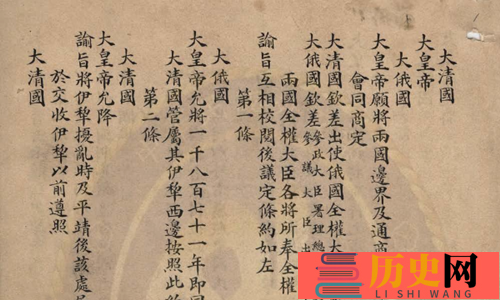 大清國
大皇帝
大俄國
大皇帝願將兩國邊界及通商
會同商定
大清國欽差出使俄國全權大
大俄國欽差
參政大臣署理總
參議大臣出
兩國全權大臣各將所奉全權
諭旨互相校閱後議定條約如左
第一條
大俄國
大皇帝允將一千八百七十一年即同
大清國管屬其伊犁西邊按照此
第二條
大清國
大皇帝允降
諭旨將伊犁擾亂時及平靖後該處
於交收伊犁以前遵照
大清國
历史网
LI SHI WANG